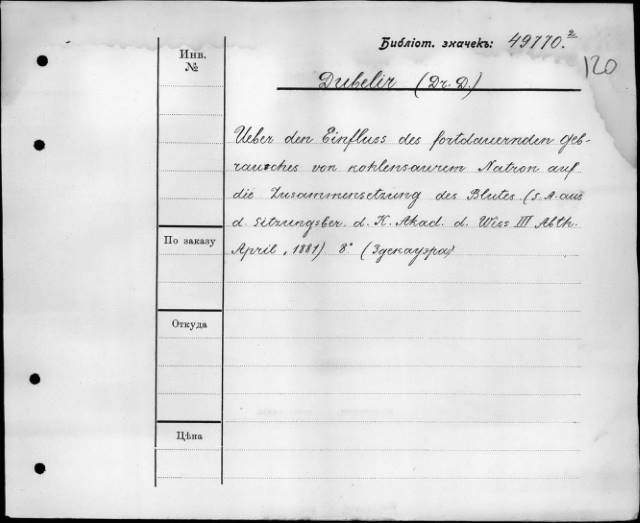 Библіот. значекъ: 49770.²
120
Инв.
№
Dubelir (Dr. D.)
Ueber den Einfluss des fortdauernden Geb-
rauches von kohlensaurem Natron auf
die Zusammensetzung des Blutes. (S. A. aus
d. Sitzungsber. d. K. Akad. d. Wiss III Abth.
April, 1881). 8° (Эдекауэра)
По заказу
Откуда
Цѣна